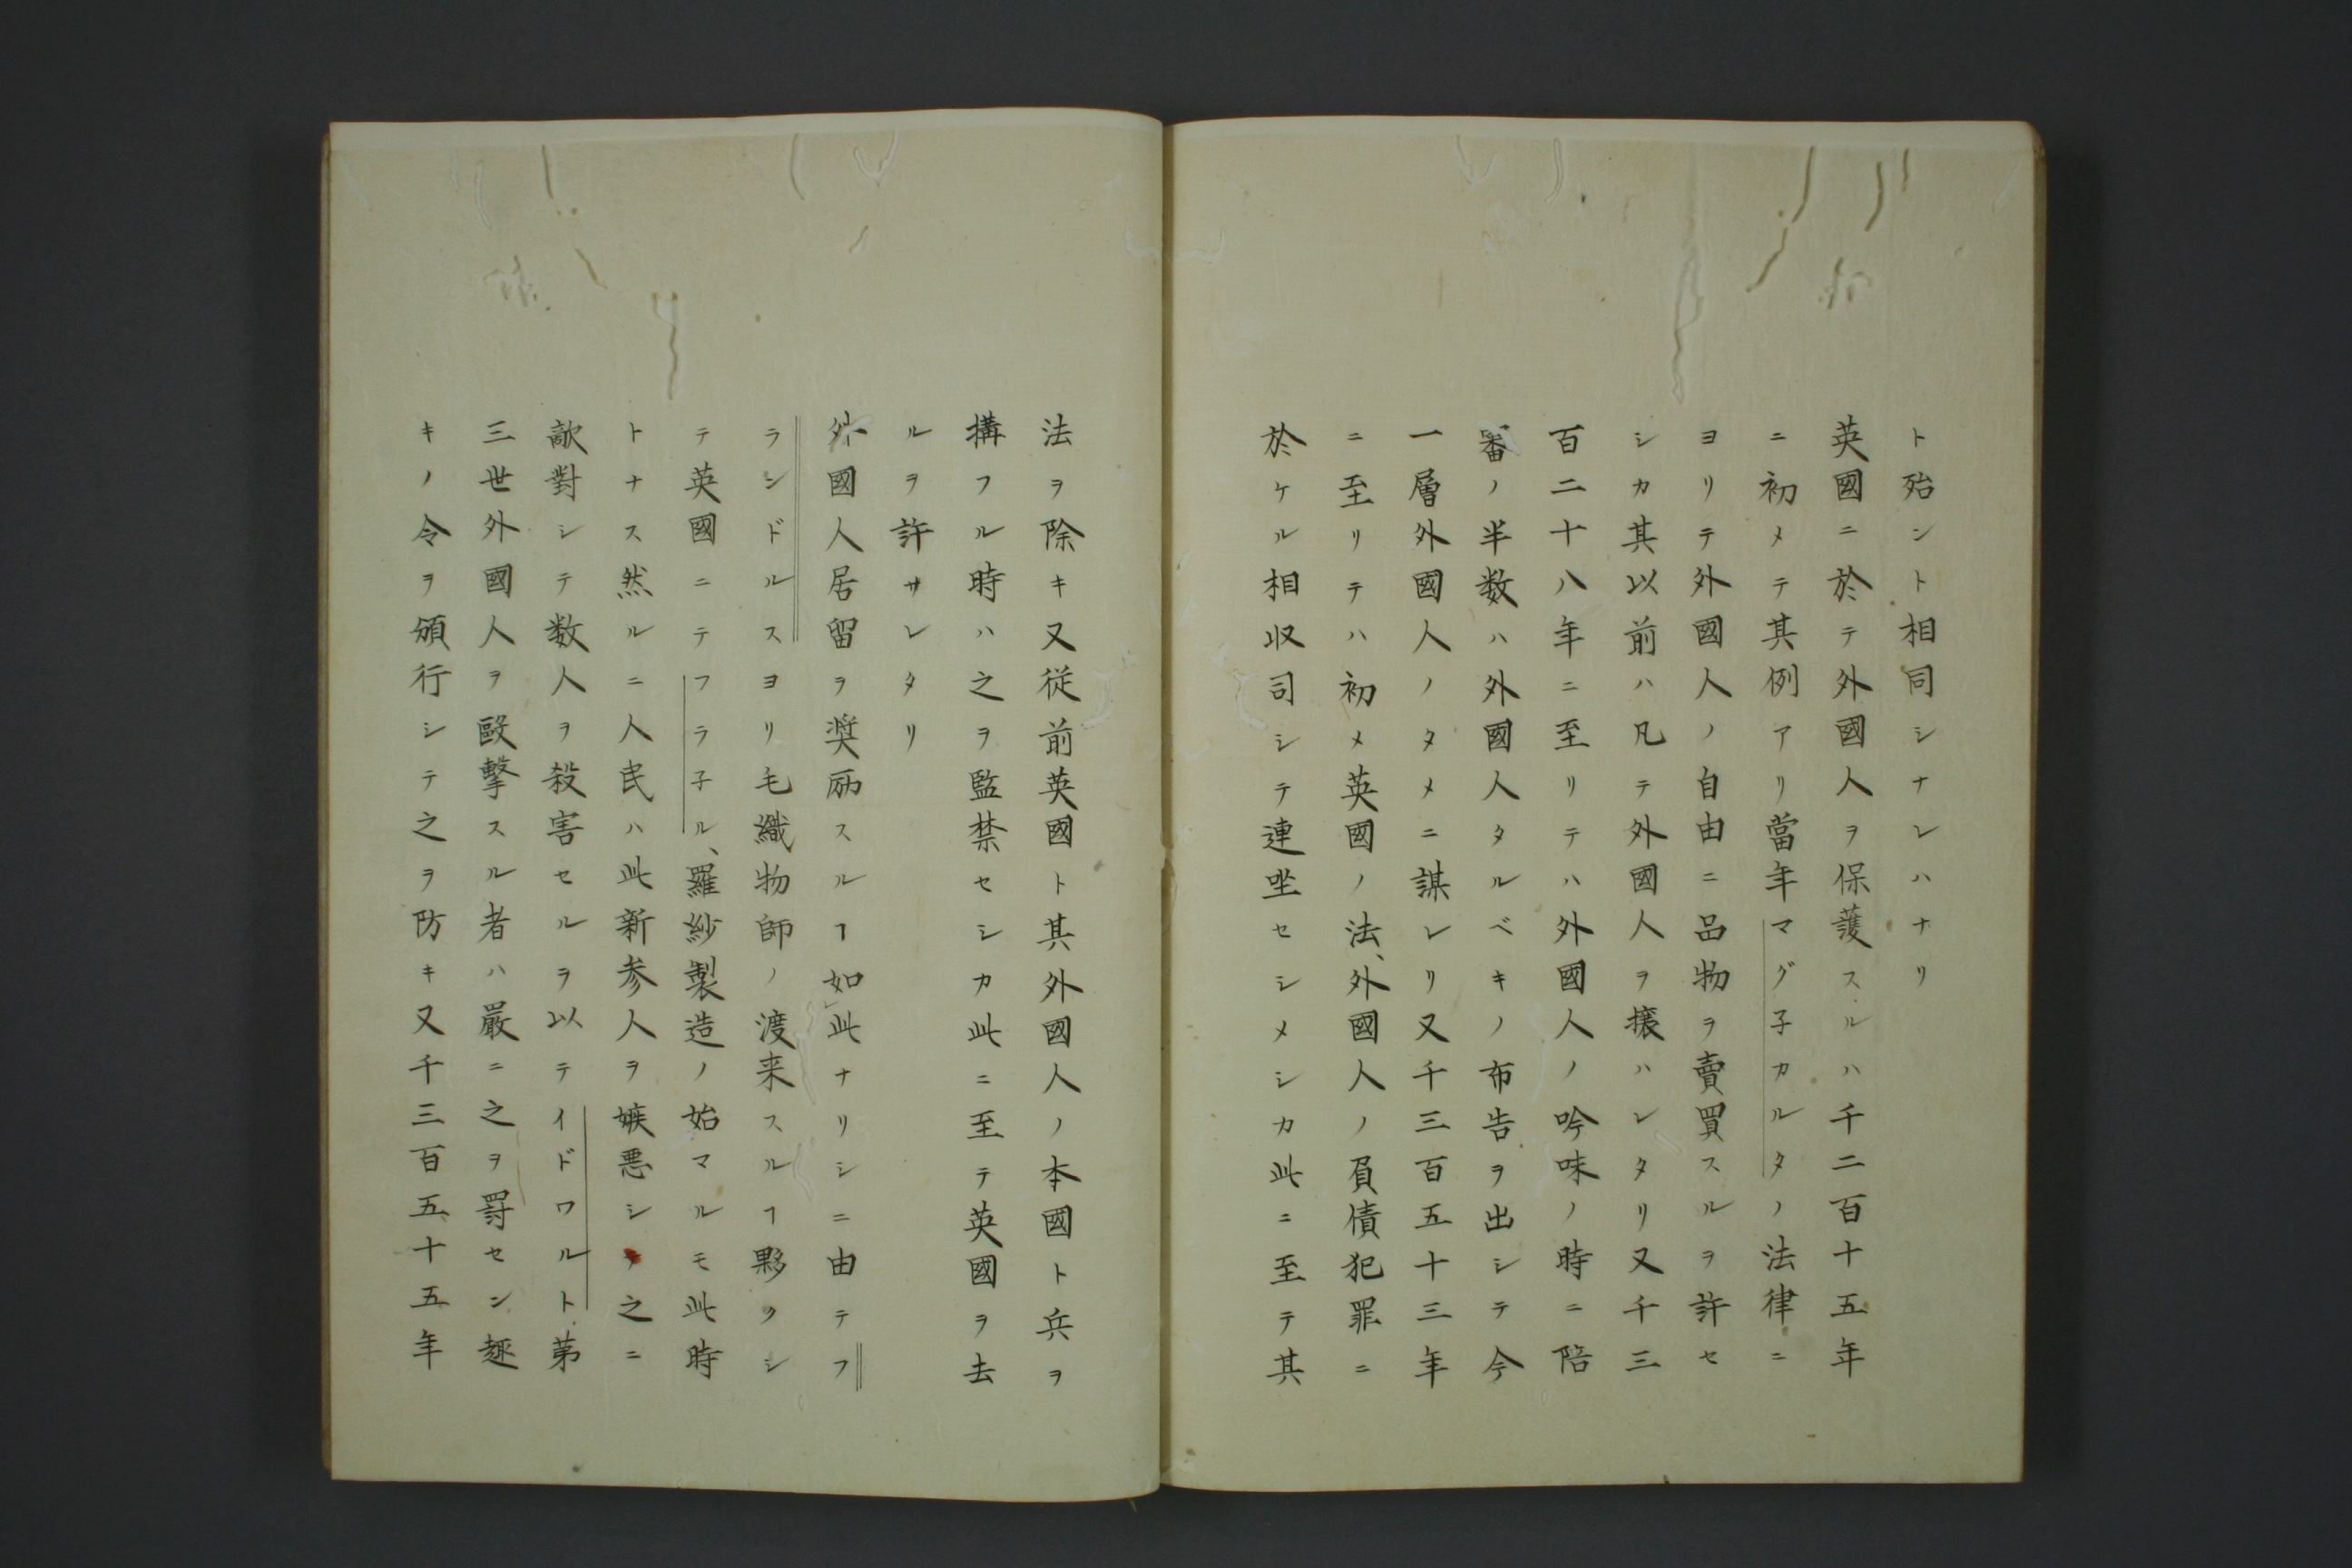 ト殆ント相同シナレハナリ
英國ニ於テ外國人ヲ保護スルハ千二百十五年
ニ初メテ其例アリ當年マグ子カルタノ法律ニ
ヨリテ外國人ノ自由ニ品物ヲ賣買スルヲ許セ
シカ其以前ハ凡テ外國人ヲ攘ハレタリ又千三
百二十八年ニ至リテハ外國人ノ吟味ノ時ニ陪
審ノ半数ハ外國人タルベキノ布告ヲ出シテ今
一層外國人ノタメニ謀レリ又千三百五十三年
ニ至リテハ初メ英國ノ法、外國人ノ負債犯罪ニ
於ケル相収司シテ連坐セシメシカ此ニ至テ其
法ヲ除キ又従前英國ト其外國人ノ本國ト兵ヲ
搆フル時ハ之ヲ監禁セシカ此ニ至テ英國ヲ去
ルヲ許サレタリ
外國人居留ヲ奨励スルヿ如此ナリシニ由テフ
ランドルスヨリ毛織物師ノ渡来スルヿ夥クシ
テ英國ニテフラ子ル、羅紗製造ノ始マルモ此時
トナス然ルニ人民ハ此新参人ヲ嫉悪シ之ニ
敵對シテ数人ヲ殺害セルヲ以テイドワルト第
三世外國人ヲ毆擊スル者ハ嚴ニ之ヲ罸セン趣
キノ令ヲ頒行シテ之ヲ防キ又千三百五十五年